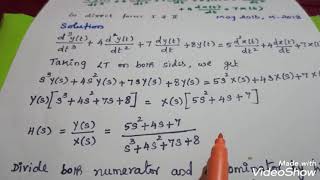 for direct form I & II
May 2015, N-2012
Solution
d³y(t)/dt³ + 4 d²y(t)/dt² + 7 dy(t)/dt + 8y(t) = 5 d²x(t)/dt² + 4 dx(t)/dt + 7
Taking LT on both sides, we get
s³Y(s) + 4s²Y(s) + 7sY(s) + 8Y(s) = 5s²X(s) + 4sX(s) + 7X
Y(s)[s³+4s²+7s+8] = X(s)[5s²+4s+7]
H(s) = Y(s)/X(s) = 5s²+4s+7 / s³+4s²+7s+8
Divide both numerator and
Made with
VideoShow